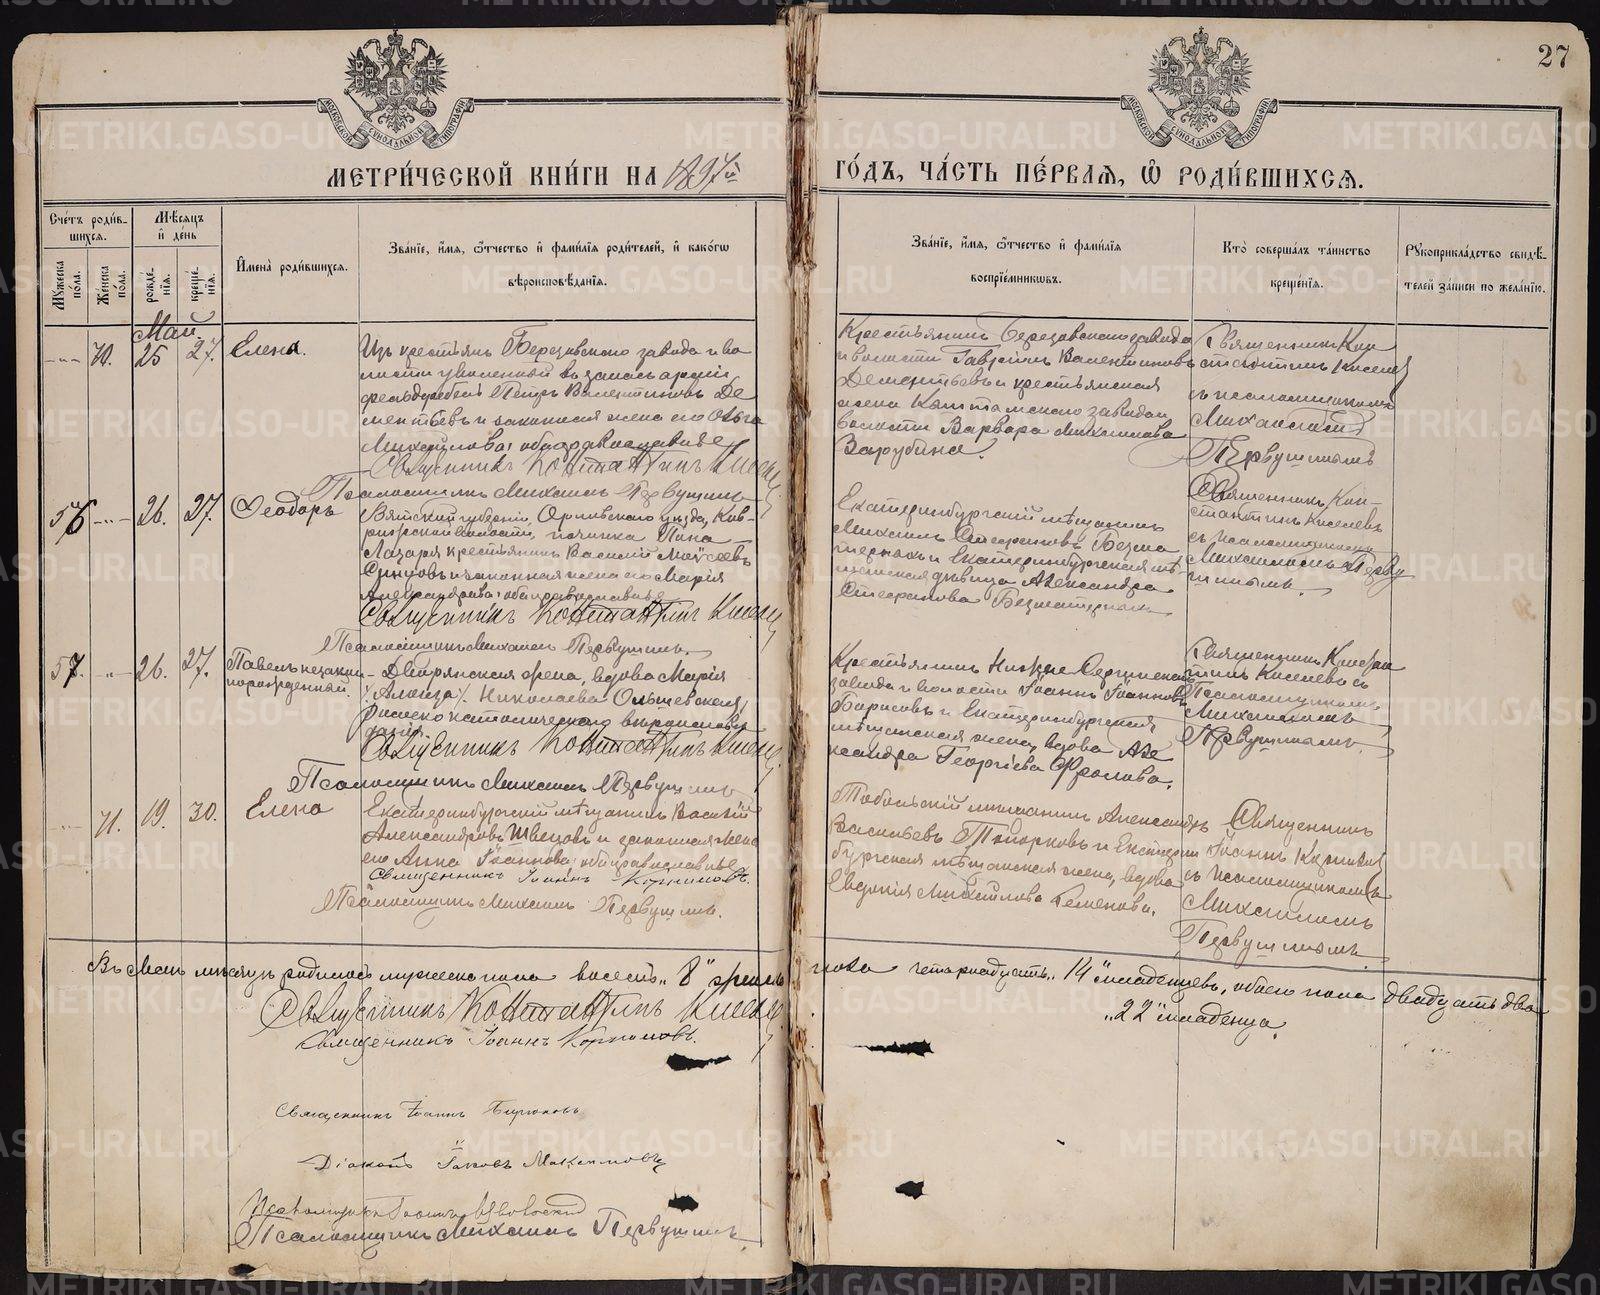 27
МОСКОВСКОЙ СѴНОДАЛЬНОЙ ТИПОГРАФІИ
МОСКОВСКОЙ СѴНОДАЛЬНОЙ ТИПОГРАФІИ
МЕТРИ́ЧЕСКОЙ КНИ́ГИ НА 1897й ГО́ДЪ, ЧА́СТЬ ПЕ́РВАѦ, Ѡ РОДИ́ВШИХСѦ.
Сче́тъ роди́в-
шихсѧ.
Мꙋжеска по́ла.
Же́нска по́ла.
Мѣ́сяцъ
и҆ де́нь
рожде́-
нїѧ.
креще́-
нїѧ.
И҆мена̀ роди́вшихсѧ.
Зва́нїе, и҆́мѧ, ѻ҆́тчество и҆ фами́лїѧ роди́телей, и҆ како́гѡ
вѣроисповѣ́данїѧ.
Зва́нїе, и҆́мѧ, ѻ҆́тчество и҆ фами́лїѧ
воспрїе́мникѡвъ.
Кто̀ соверша́лъ та́инство
креще́нїѧ.
Рꙋкоприкла́дство свидѣ́-
телей за́писи по жела́нїю.
Май.
70. 25 27. Елена.
Изъ крестьянъ Березовскаго завода и во
лости уволенный въ запасъ арміи
фельдфебель Петръ Валентиновъ Де
ментьевъ и законная жена его Ольга
Михайлова, оба православные
Священникъ Константинъ Киселевъ
Псаломщикъ Михаилъ Первушинъ
Крестьянинъ Березовскаго завода
и волости Гавріилъ Валентиновъ
Дементьевъ и крестьянская
жена завода и
волости Варвара Михайлова
Зарубина.
Священникъ Кон
стантинъ Киселевъ
съ псаломщикомъ
Михаиломъ
Первушинымъ
56 26. 27. Ѳеодоръ
Вятской губерніи, Орловскаго уѣзда,
волости, починка
Лазаря крестьянинъ Василій Моѵсеевъ
и законная жена его Марія
Александрова, оба православные
Священникъ Константинъ Киселевъ
Псаломщикъ Михаилъ Первушинъ.
Екатеринбургскій мѣщанинъ
Михаилъ Стефановъ Безма
терныхъ и Екатеринбургская мѣ-
щанская дѣвица Александра
Стефанова Безматерныхъ
Священникъ Кон-
стантинъ Киселевъ
съ псаломщикомъ
Михаиломъ Перву
шинымъ.
57. 26. 27. Павелъ незакон-
норожденный.
Дворянская жена, вдова Марія
Николаева Ольшевская,
римско католическаго вѣроисповѣ
данія
Священникъ Константинъ Киселевъ
Псаломщикъ Михаилъ Первушинъ
Крестьянинъ Нижне Сергинскаго
завода и волости Іоаннъ Іоанновъ
Борисовъ и Екатеринбургская
мѣщанская жена, вдова Але
ксандра Георгіева Фролова.
Священникъ Констан
тинъ Киселевъ съ
Псаломщикомъ
Михаиломъ
Первушинымъ.
71. 19. 30. Елена
Екатеринбургскій мѣщанинъ Василій
Александровъ Швецовъ и законная жена
его Анна Іоаннова, оба православные
Священникъ Іоаннъ
Псаломщикъ Михаилъ Первушинъ.
Тобольскій мѣщанинъ Александръ
Васильевъ и Екатерин
бургская мѣщанская жена, вдова
Евдокія Михайлова Семенова.
Священникъ
Іоаннъ
съ псаломщикомъ
Михаиломъ
Первушинымъ.
Въ маѣ мѣсяцѣ родилось мужеска пола восемь „8“ женска пола четырнадцать „14“ младенцевъ, обоего пола двадцать два
„22“ младенца.
Священникъ Константинъ Киселевъ
Священникъ Іоаннъ
Священникъ Іоаннъ Бирюковъ
Діаконъ Іаковъ Максимовъ
Псаломщикъ Іоаннъ
Псаломщикъ Михаилъ Первушинъ
METRIKI.GASO-URAL.RU